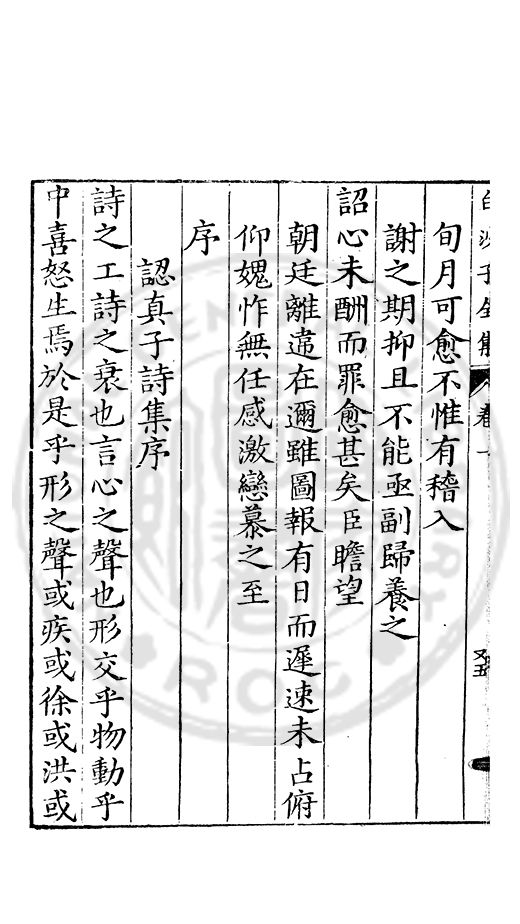 白沙子全集 卷一 又五
旬月可愈不惟有稽入
謝之期抑且不能亟副歸養之
詔心未酬而罪愈甚矣臣瞻望
朝廷離違在邇雖圖報有日而遲速未占俯
仰媿怍無任感激戀慕之至
序
認真子詩集序
詩之工詩之衰也言心之聲也形交乎物動乎
中喜怒生焉於是乎形之聲或疾或徐或洪或